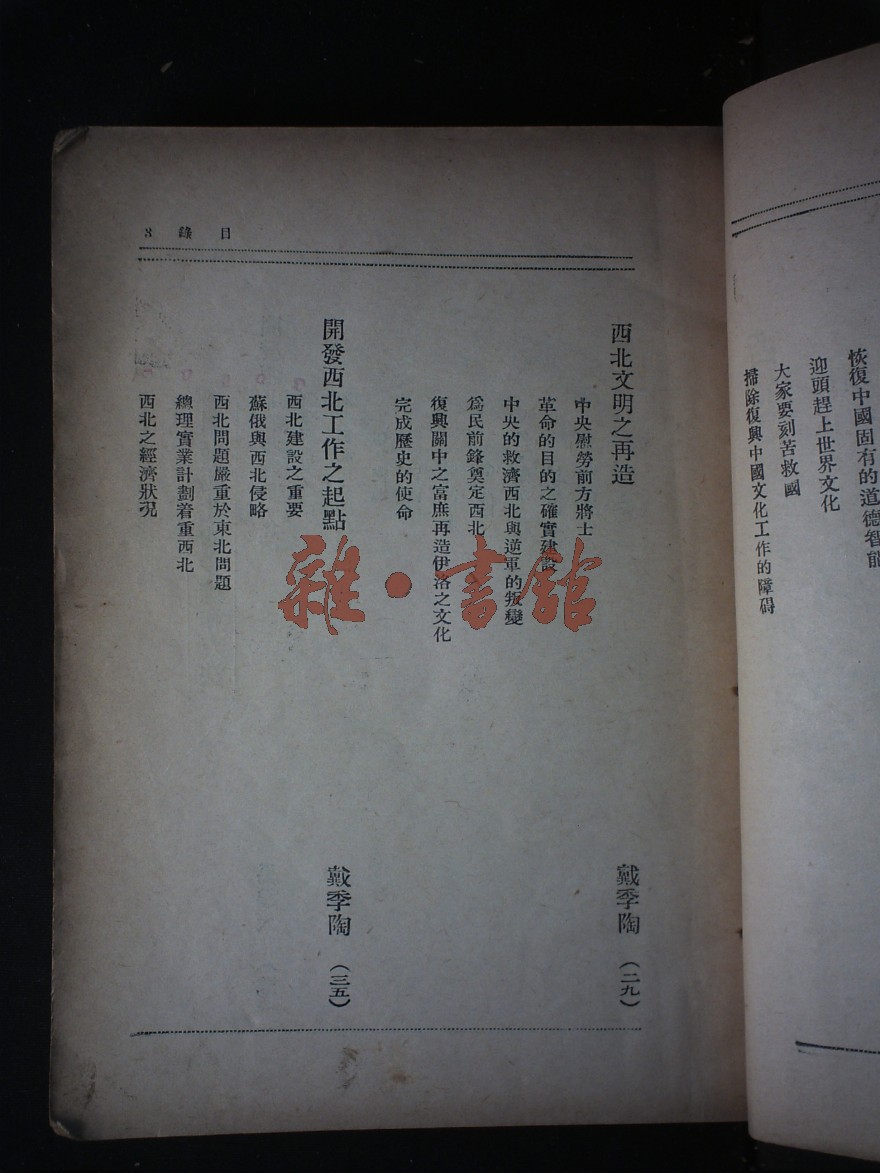 恢復中國固有的道德智能
迎頭趕上世界文化
大家要刻苦救國
掃除復興中國文化工作的障碍
目錄 8
西北文明之再造 戴季陶 (二九)
中央慰勞前方將士
革命的目的之確實建設
中央的救濟西北與逆軍的叛變
爲民前鋒奠定西北
復興關中之富庶再造伊洛之文化
完成歷史的使命
開發西北工作之起點 戴季陶 (三五)
西北建設之重要
蘇俄與西北侵略
西北問題嚴重於東北問題
總理實業計劃着重西北
西北之經濟狀況
雜·書館